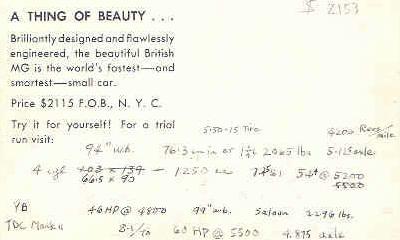 $ 2153
A THING OF BEAUTY . . .
Brilliantly designed and flawlessly
engineered, the beautiful British
MG is the world's fastest—and
smartest—small car.
Price $2115 F.O.B., N. Y. C.
Try it for yourself! For a trial
run visit:
5.50-15 Tire
4200 Revs/mile
94" w.b. 76.3 cu in or 1¼ 2065 lbs 5.125 axle
4 cyl 103 x 139 — 1250 cc 54 @ 5200
66.5 x 90 5500
YB 46 HP @ 4800 99" w.b. Saloon 2296 lbs.
TDC Mark II 8.1/10 60 HP @ 5500 4.875 axle